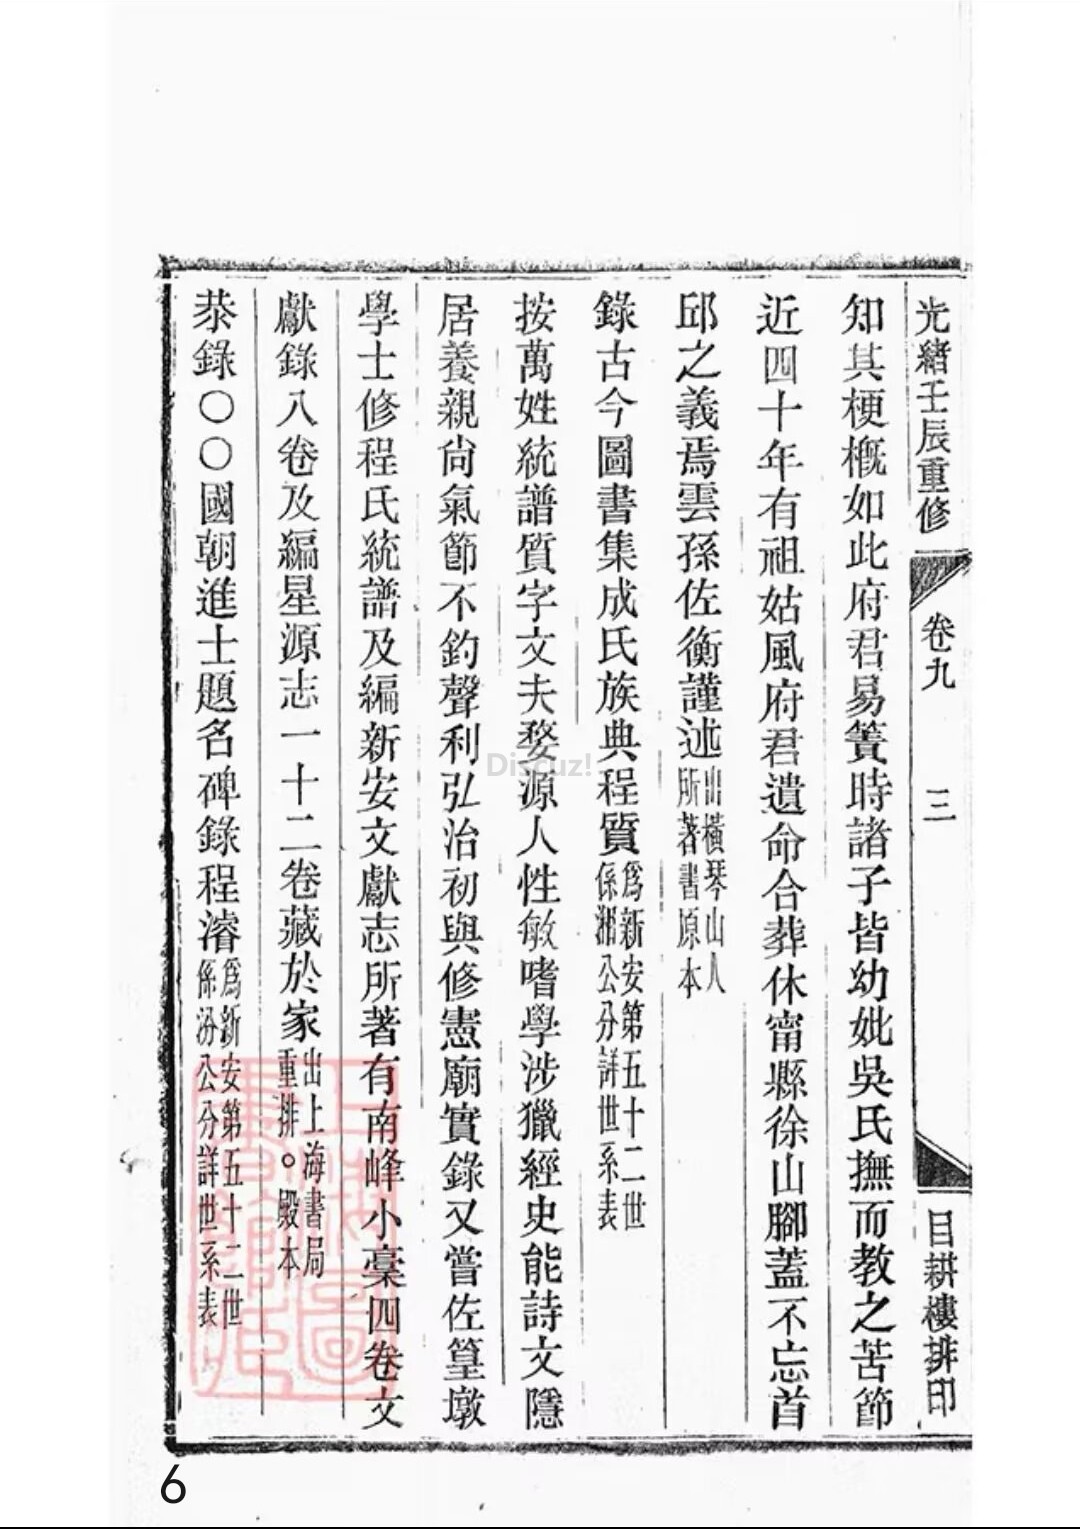 光緒壬辰重修 卷九 三 目耕樓排印
知其梗概如此府君易簀時諸子皆幼妣吳氏撫而教之苦節
近四十年有祖姑風府君遺命合葬休甯縣徐山腳蓋不忘首
邱之義焉雲孫佐衡謹述出橫琴山人所著書原本
錄古今圖書集成氏族典程質爲新安第五十二世係湘公分詳世系表
按萬姓統譜質字文夫婺源人性敏嗜學涉獵經史能詩文隱
居養親尙氣節不釣聲利弘治初與修憲廟實錄又嘗佐篁墩
學士修程氏統譜及編新安文獻志所著有南峰小稾四卷文
獻錄八卷及編星源志一十二卷藏於家出上海書局重排。殿本
恭錄〇〇國朝進士題名碑錄程濬爲新安第五十二世係汾公分詳世系表
Discuz!
6